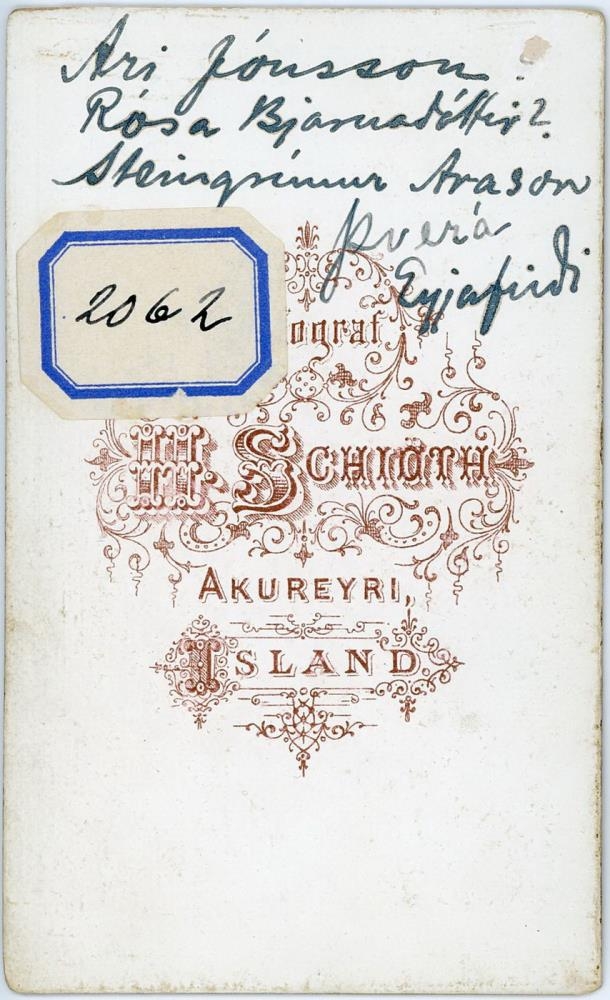 Ari Jónsson.
Rósa Bjarnadóttir?
Steingrímur Arason
Þverá
Eyjafirði
2062
ograf
H. Schiöth
Akureyri,
Island